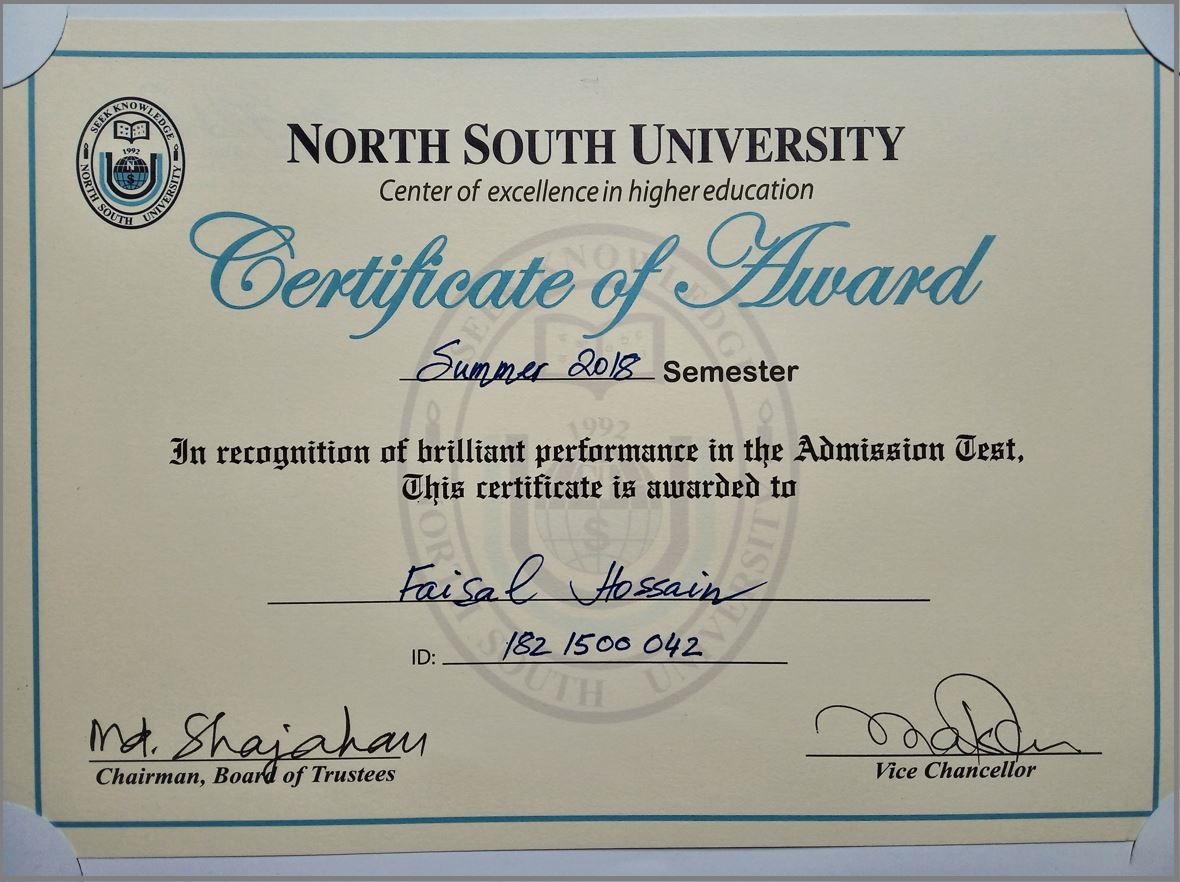 SEEK KNOWLEDGE
1992
NORTH SOUTH UNIVERSITY
NORTH SOUTH UNIVERSITY
Center of excellence in higher education
Certificate of Award
Summer 2018 Semester
In recognition of brilliant performance in the Admission Test,
This certificate is awarded to
Faisal Hossain
ID: 182 1500 042
Md. Shajahan
Chairman, Board of Trustees
Vice Chancellor
SEEK KNOWLEDGE
1992
NORTH SOUTH UNIVERSITY